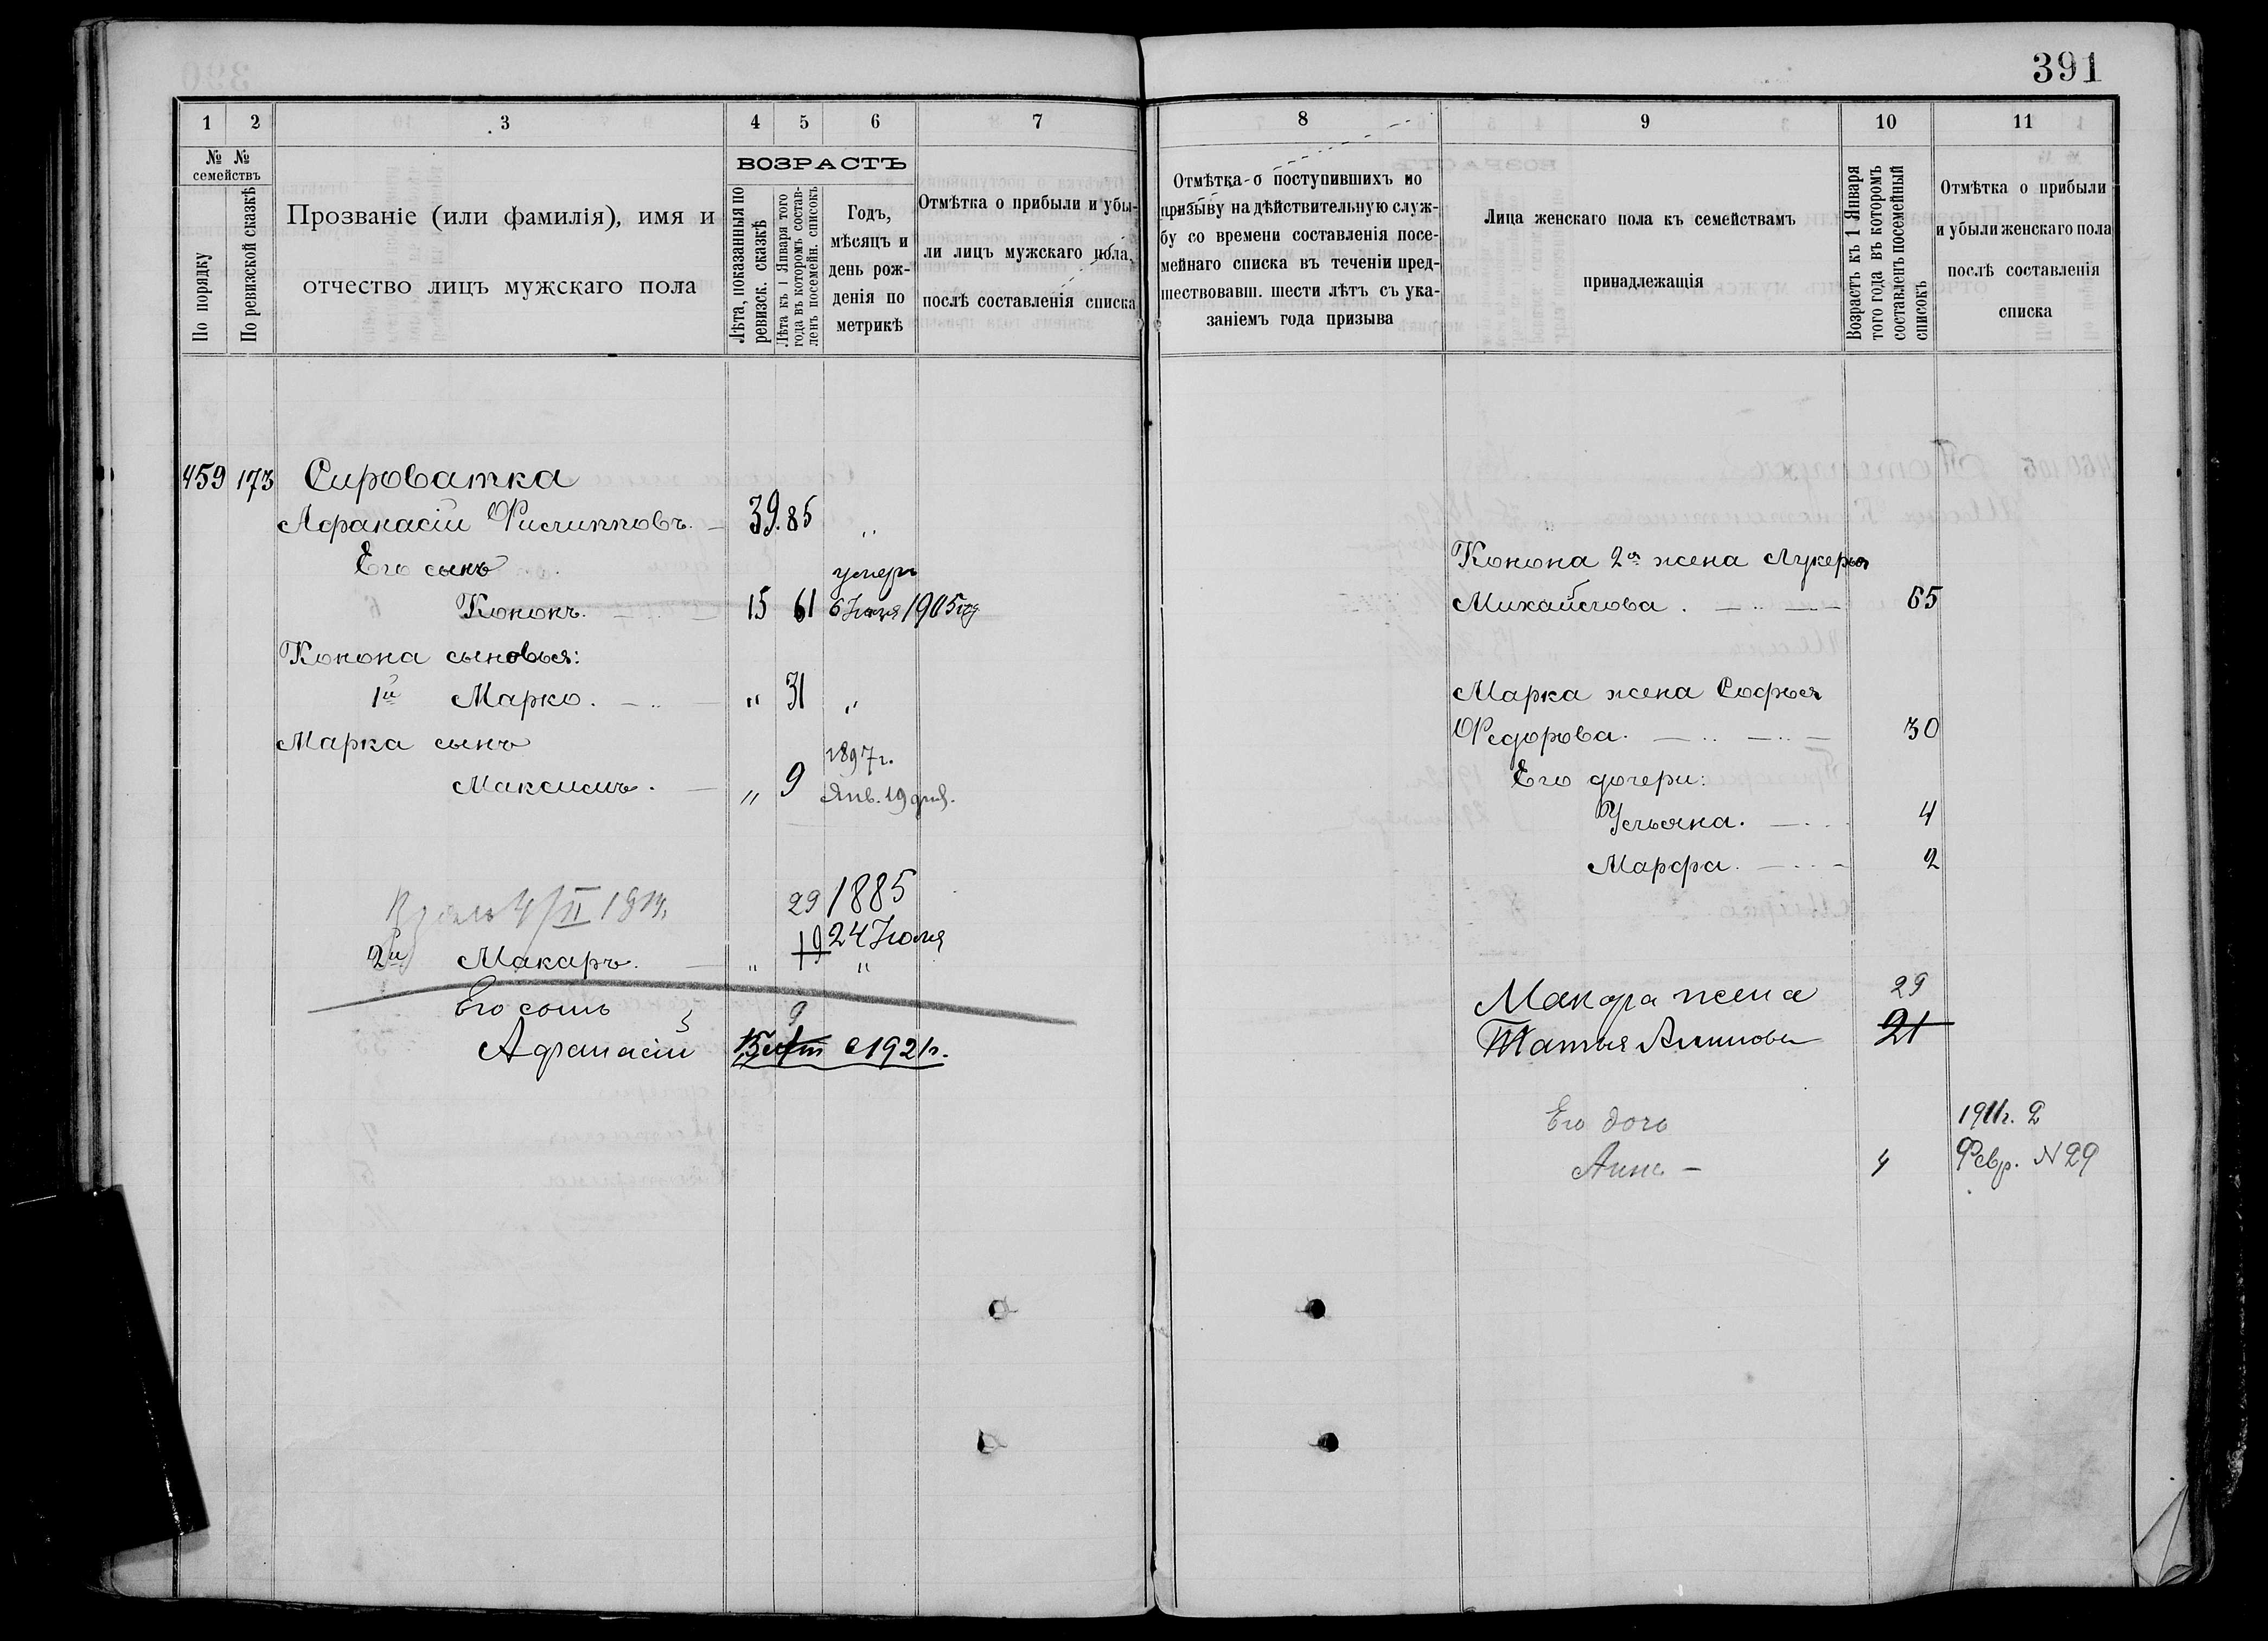 391
1 2 3 4 5 6 7
№ № семействъ
По порядку
По ревизской сказкѣ
Прозваніе (или фамилія), имя и
отчество лицъ мужскаго пола
ВОЗРАСТЪ
Лѣта, показанныя по
ревизск. сказкѣ
Лѣта къ 1 Января того
года въ которомъ состав-
ленъ посемейн. списокъ
Годъ,
мѣсяцъ и
день рож-
денія по
метрикѣ
Отмѣтка о прибыли и убы-
ли лицъ мужскаго пола,
послѣ составленія списка
459 173 Сироватка
Афанасій Филипповъ. 39. 85 "
Его сынъ умеръ
Кононъ. 15 61 6 Іюля 1905 год
Конона сыновья:
1й Марко. " 31 "
Марка сынъ 1897 г.
Максимъ. " 9 Янв. 19 дня.
4/II 1914
29 1885
19 24 Іюля
2й Макаръ. " "
Его сынъ 9
Афанасій 15 лѣт с 1921 г.
8 9 10 11
Отмѣтка о поступившихъ по
призыву на дѣйствительную служ-
бу со времени составленія посе-
мейнаго списка въ теченіи пред-
шествовавш. шести лѣтъ съ ука-
заніемъ года призыва
Лица женскаго пола къ семействамъ
принадлежащія
Возрастъ къ 1 Января
того года въ которомъ
составленъ посемейный
списокъ
Отмѣтка о прибыли
и убыли женскаго пола
послѣ составленія
списка
Конона 2я жена Лукерья
Михайлова. 65
Марка жена Софья
Федорова. 30
Его дочери:
Ульяна. 4
Марфа. 2
Макара жена 29
Татья 21
Его дочь 1911 г. 2
Анна - 4 Февр. N 29